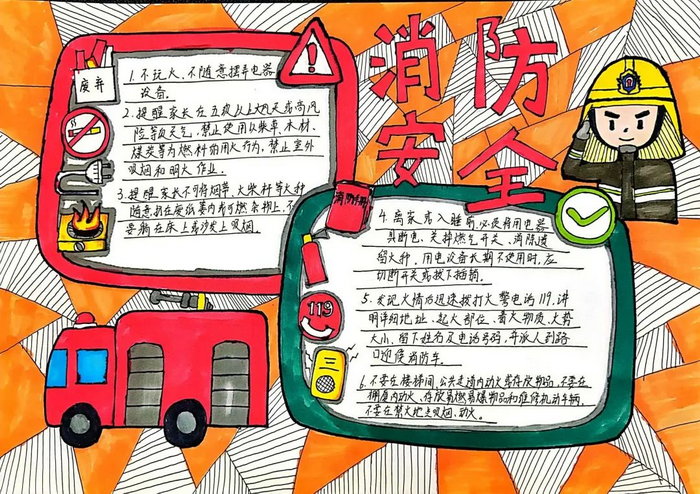 消防
安全
废弃
1. 不玩火、不随意摆弄电器
设备。
2. 提醒家长在五级以上大风天或高风
险等级天气,禁止使用以柴草、木材、
煤炭等为燃料的用火行为,禁止室外
吸烟和明火作业。
3. 提醒家长不可将烟蒂、火柴杆等火种
随意扔在废纸篓内或可燃杂物上,不
要躺在床上或沙发上吸烟。
4. 离家或入睡前,必须将用电器
具断电、关掉燃气开关、消除遗
留火种。用电设备长期不使用时,应
切断开关或拔下插销。
5. 发现火情后迅速拨打火警电话119,讲
明详细地址、起火部位、着火物质、火势
大小、留下姓名及电话号码,并派人到路
口迎候消防车。
6. 不要在楼梯间、公共走道内动火或存放物品,不要在
棚厦内动火、存放易燃易爆物品和维修机动车辆,
不要在禁火地点吸烟、动火。
119